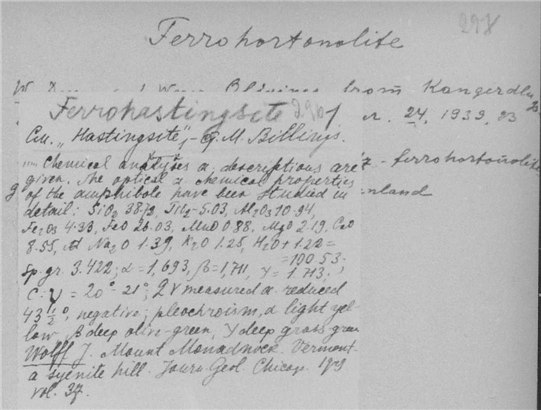 298
Ferrohortonolite
from Kangerdlu
24, 1939, 23
Ferrohastingsite 290
См. "Hastingsite", - G. M. Billings.
Chemical analyses a. descriptions are - ferrohortonolite
given. The optical a chemical properties
of the amphibole have been studied in
detail: SiO2 38.73, TiO2 - 5.03, Al2O3 10.94,
Fe2O3 4.33, FeO 26.03, MnO 0.88, MgO 2.19, CaO
8.55, Na2O 1.39, K2O 1.25, H2O + 1.22 =
= 100.53;
Sp. gr. 3.422; α = 1,693, β = 1,711, γ = 1.713.
C:γ = 20° - 21°; 2V measured a. reduced
43 1/2°, negative; pleochroism, α light yel
low, β deep olive-green, γ deep grass green
Wolff J. Mount Monadnock. Vermont -
a syenite hill. Journ. Geol. Chicag. 1929
vol. 37.